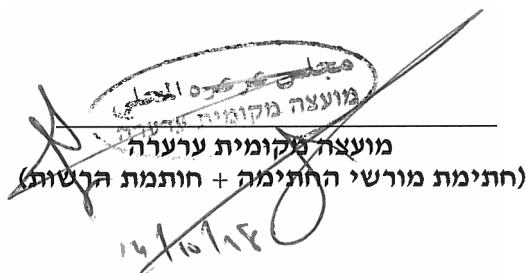 مجلس عرعره المحلي
מועצה מקומית ערערה
מועצה מקומית ערערה
(חתימת מורשי החתימה + חותמת הרשות)